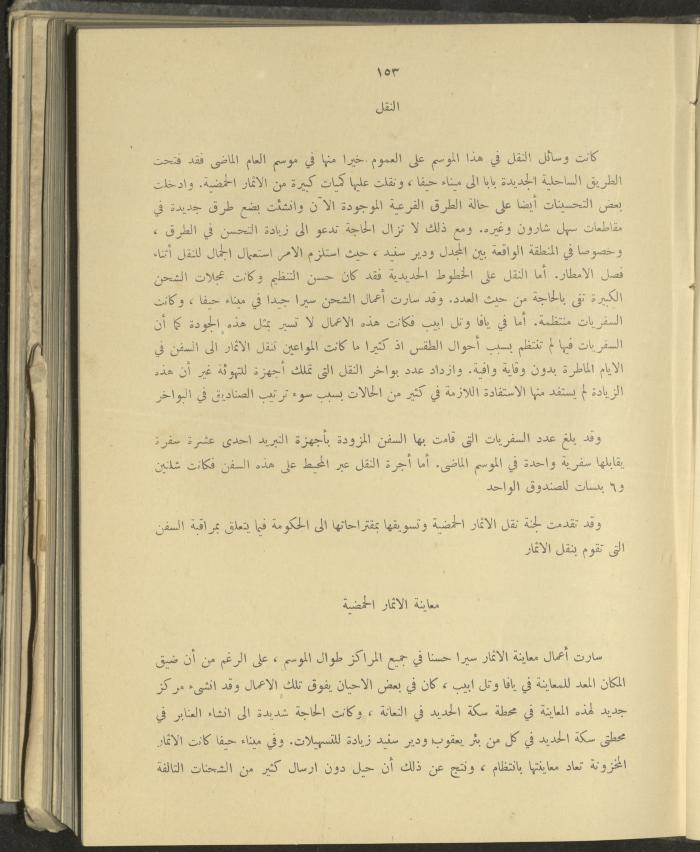 ١٥٣
النقل
كانت وسائل النقل في هذا الموسم على العموم خيرا منها في موسم العام الماضى فقد فتحت
الطريق الساحلية الجديدة بابا الى ميناء حيفا ، ونقلت عليها كميات كبيرة من الاثمار الحمضية. وادخلت
بعض التحسينات أيضا على حالة الطرق الفرعية الموجودة الآن وانشئت بضع طرق جديدة في
مقاطعات سهل شارون وغيره. ومع ذلك لا تزال الحاجة تدعو الى زيادة التحسن في الطرق ،
وخصوصا في المنطقة الواقعة بين المجدل ودير سنيد ، حيث استلزم الامر استعمال الجمال للنقل أثناء
فصل الامطار. أما النقل على الخطوط الحديدية فقد كان حسن التنظيم وكانت عجلات الشحن
الكبيرة تفى بالحاجة من حيث العدد. وقد سارت أعمال الشحن سيرا جيدا في ميناء حيفا ، وكانت
السفريات منتظمة. أما في يافا وتل ابيب فكانت هذه الاعمال لا تسير بمثل هذه الجودة كما أن
السفريات فيها لم تنتظم بسبب أحوال الطقس اذ كثيرا ما كانت المواعين تنقل الاثمار الى السفن في
الايام الماطرة بدون وقاية وافية. وازداد عدد بواخر النقل التى تملك أجهزة للتهوئة غير أن هذه
الزيادة لم يستفد منها الاستفادة اللازمة في كثير من الحالات بسبب سوء ترتيب الصناديق في البواخر
وقد بلغ عدد السفريات التى قامت بها السفن المزودة بأجهزة التبريد احدى عشرة سفرة
يقابلها سفرية واحدة في الموسم الماضى. أما أجرة النقل عبر المحيط على هذه السفن فكانت شلنين
و٦ بنسات للصندوق الواحد
وقد تقدمت لجنة نقل الاثمار الحمضية وتسويقها بمقتراحاتها الى الحكومة فيما يتعلق بمراقبة السفن
التى تقوم بنقل الاثمار
معاينة الاثمار الحمضية
سارت أعمال معاينة الاثمار سيرا حسنا في جميع المراكز طوال الموسم ، على الرغم من أن ضيق
المكان المعد للمعاينة في يافا وتل ابيب ، كان في بعض الاحيان يفوق تلك الاعمال وقد انشىء مركز
جديد لهذه المعاينة في محطة سكة الحديد في النعانة ، وكانت الحاجة شديدة الى انشاء العنابر في
محطتى سكة الحديد في كل من بئر يعقوب ودير سنيد زيادة للتسهيلات. وفي ميناء حيفا كانت الاثمار
المخزونة تعاد معاينتها بانتظام ، ونتج عن ذلك أن حيل دون ارسال كثير من الشحنات التالفة